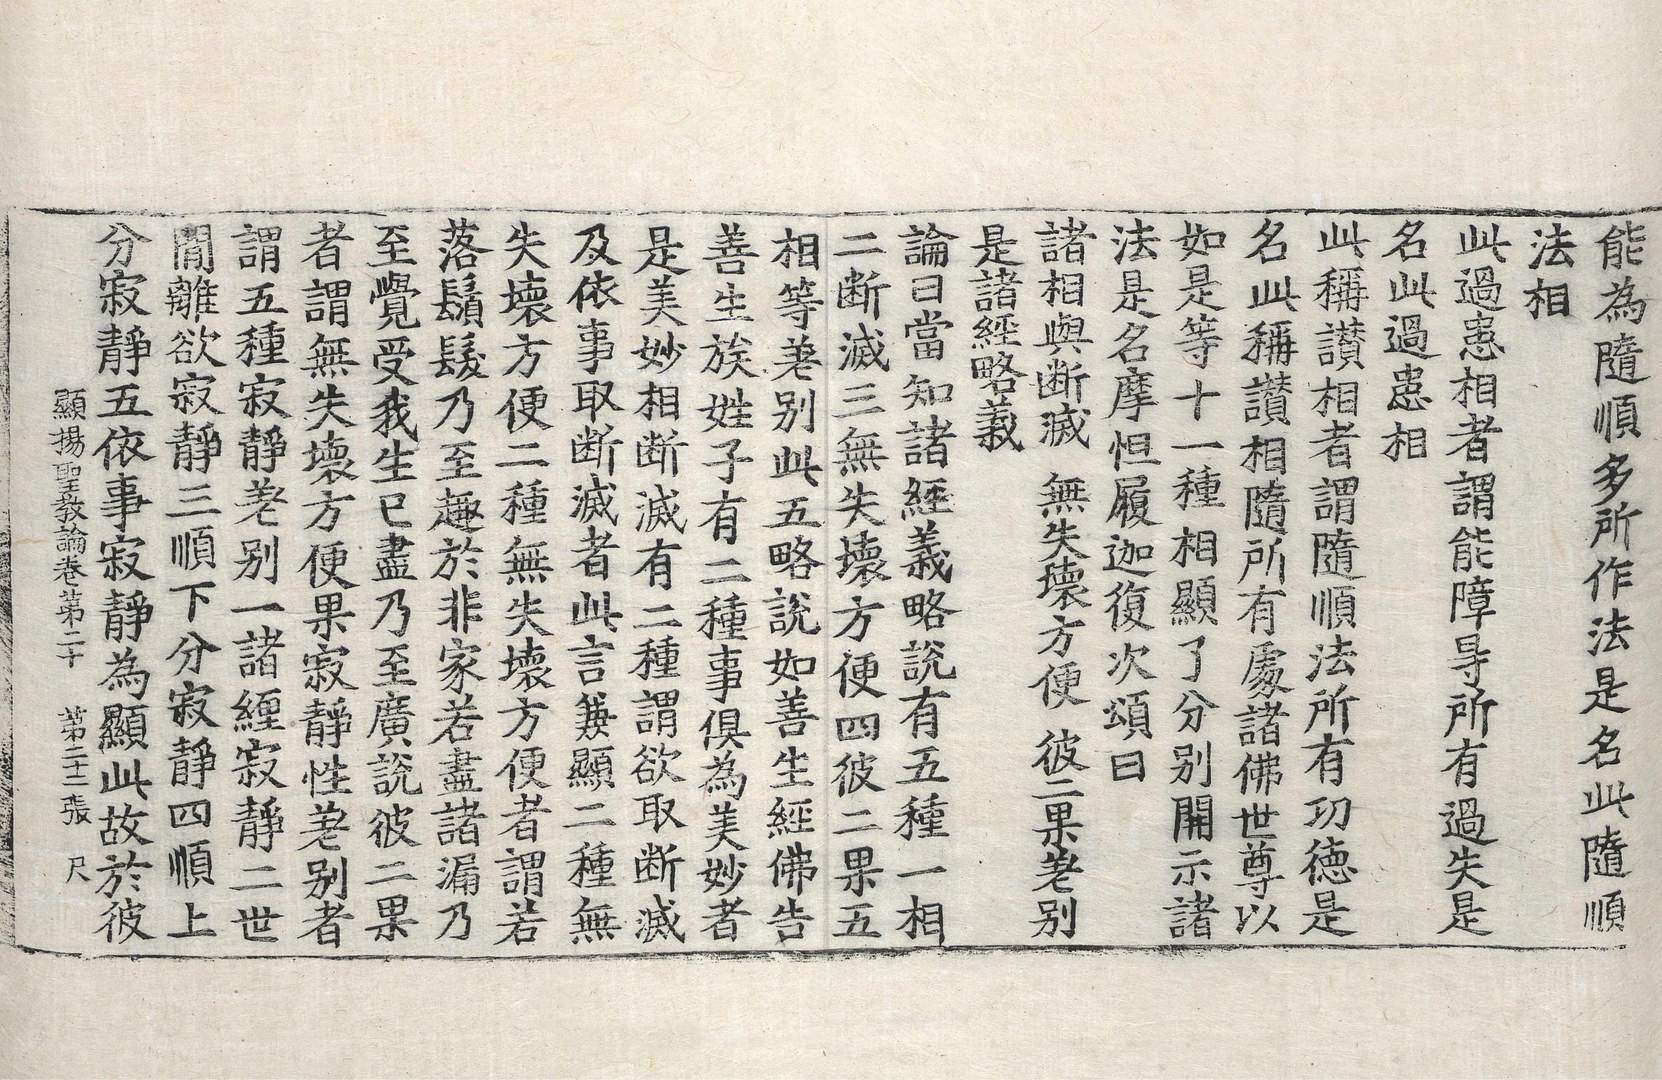 能為隨順多所作法是名此隨順
法相
此過患相者謂能障㝵所有過失是
名此過患相
此稱讃相者謂隨順法所有功德是
名此稱讃相隨所有處諸佛世尊以
如是等十一種相顯了分別開示諸
法是名摩怛履迦復次頌曰
諸相與斷滅 無失壞方便 彼二果差别
是諸經略義
論曰當知諸經義略說有五種一相
二斷滅三無失壞方便四彼二果五
相等差别此五略說如善生經佛告
善生族姓子有二種事俱為美妙者
是美妙相斷滅有二種謂欲取斷滅
及依事取斷滅者此言兼顯二種無
失壞方便二種無失壞方便者謂若
落鬚髮乃至趣於非家若盡諸漏乃
至覺受我生已盡乃至廣說彼二果
者謂無失壞方便果寂靜性差别者
謂五種寂靜差别一諸纏寂靜二世
閒離欲寂靜三順下分寂靜四順上
分寂靜五依事寂靜為顯此故於彼
顯揚聖教論卷第二十 第二十二張 尺